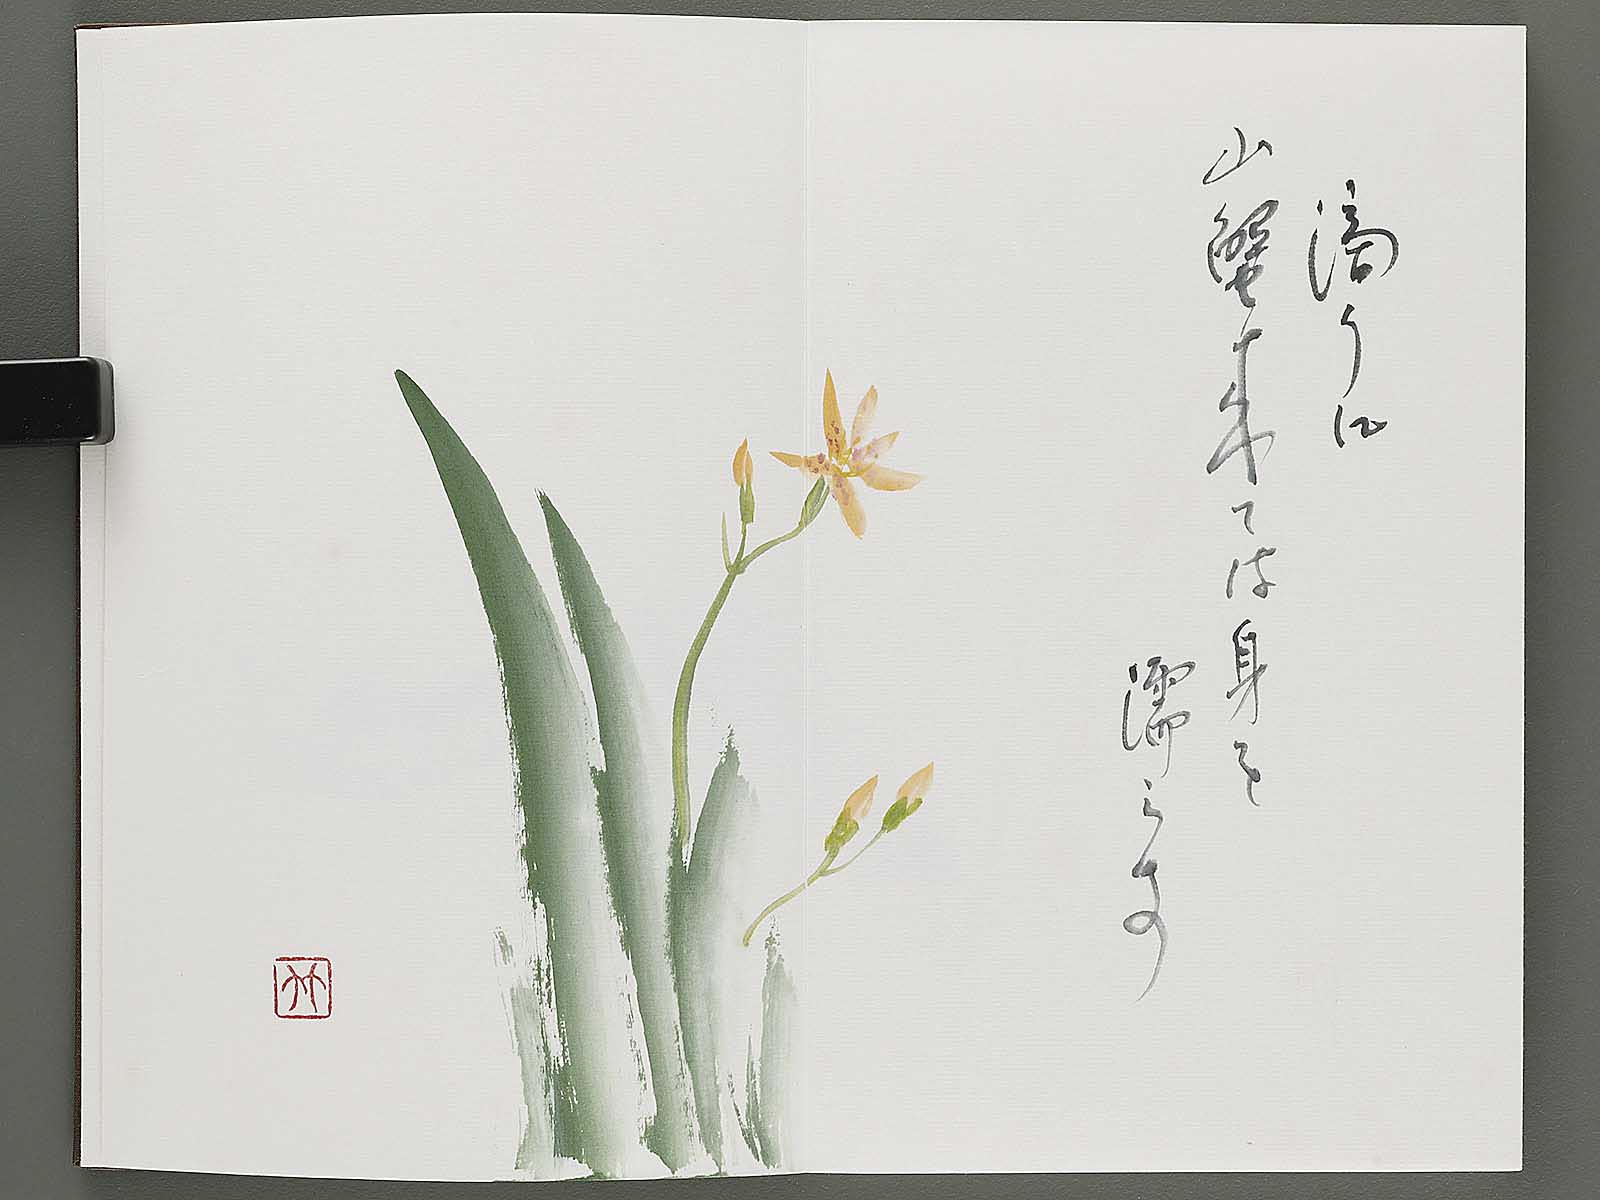 滴りに
山蟹来ては身を
濡らす
竹